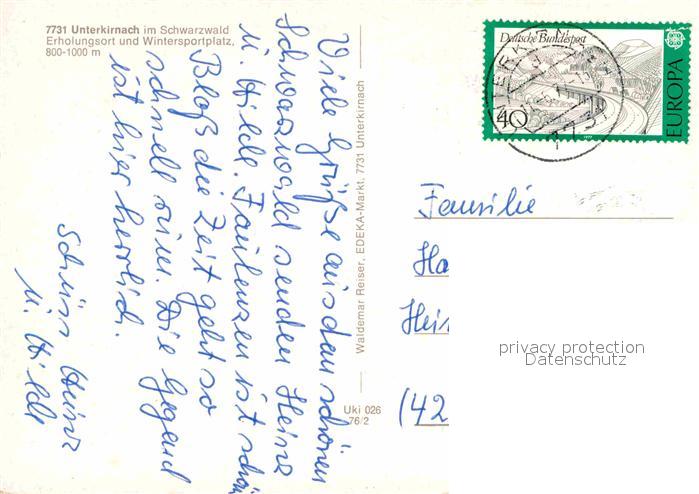 7731 Unterkirnach im Schwarzwald
Erholungsort und Wintersportplatz,
800-1000 m
Viele Grüße aus dem schönen
Schwarzwald senden Heinz
u. Hilde. Faulenzen ist schön
Bloß die Zeit geht so
schnell rum. Die Gegend
ist hier herrlich.
Schüss Heinz
u. Hilde
Waldemar Reiser, EDEKA-Markt, 7731 Unterkirnach
Uki 026
76/2
Deutsche Bundespost
40
EUROPA
1977
Familie
Ha
Hein
(42
privacy protection
Datenschutz